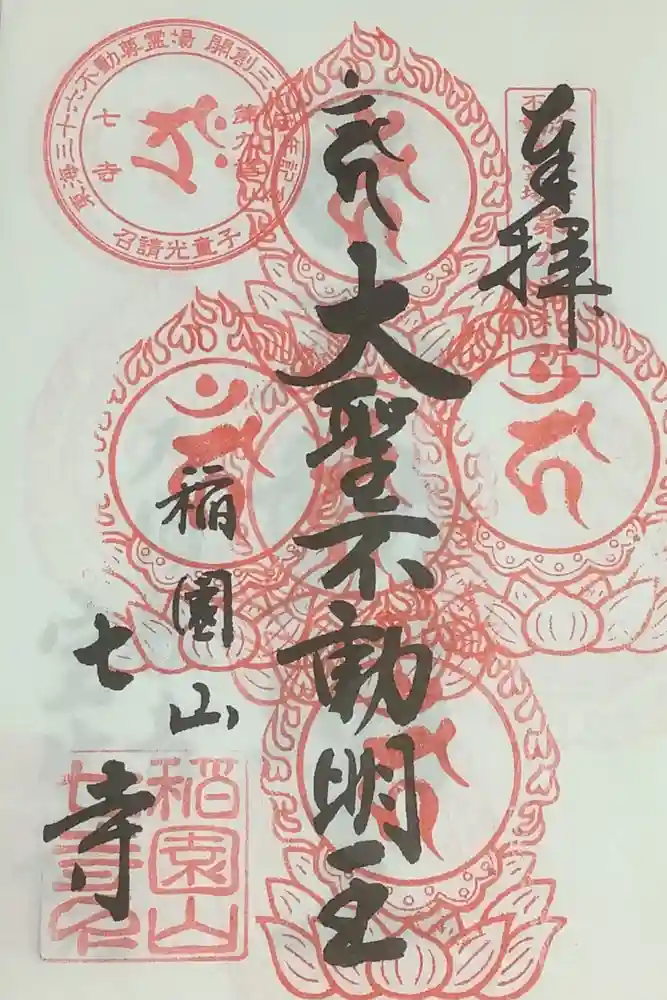 奉拝
大聖不動明王
稲園山
七寺
東海三十六不動尊霊場 開創三
七寺
召請光童子
稲園山